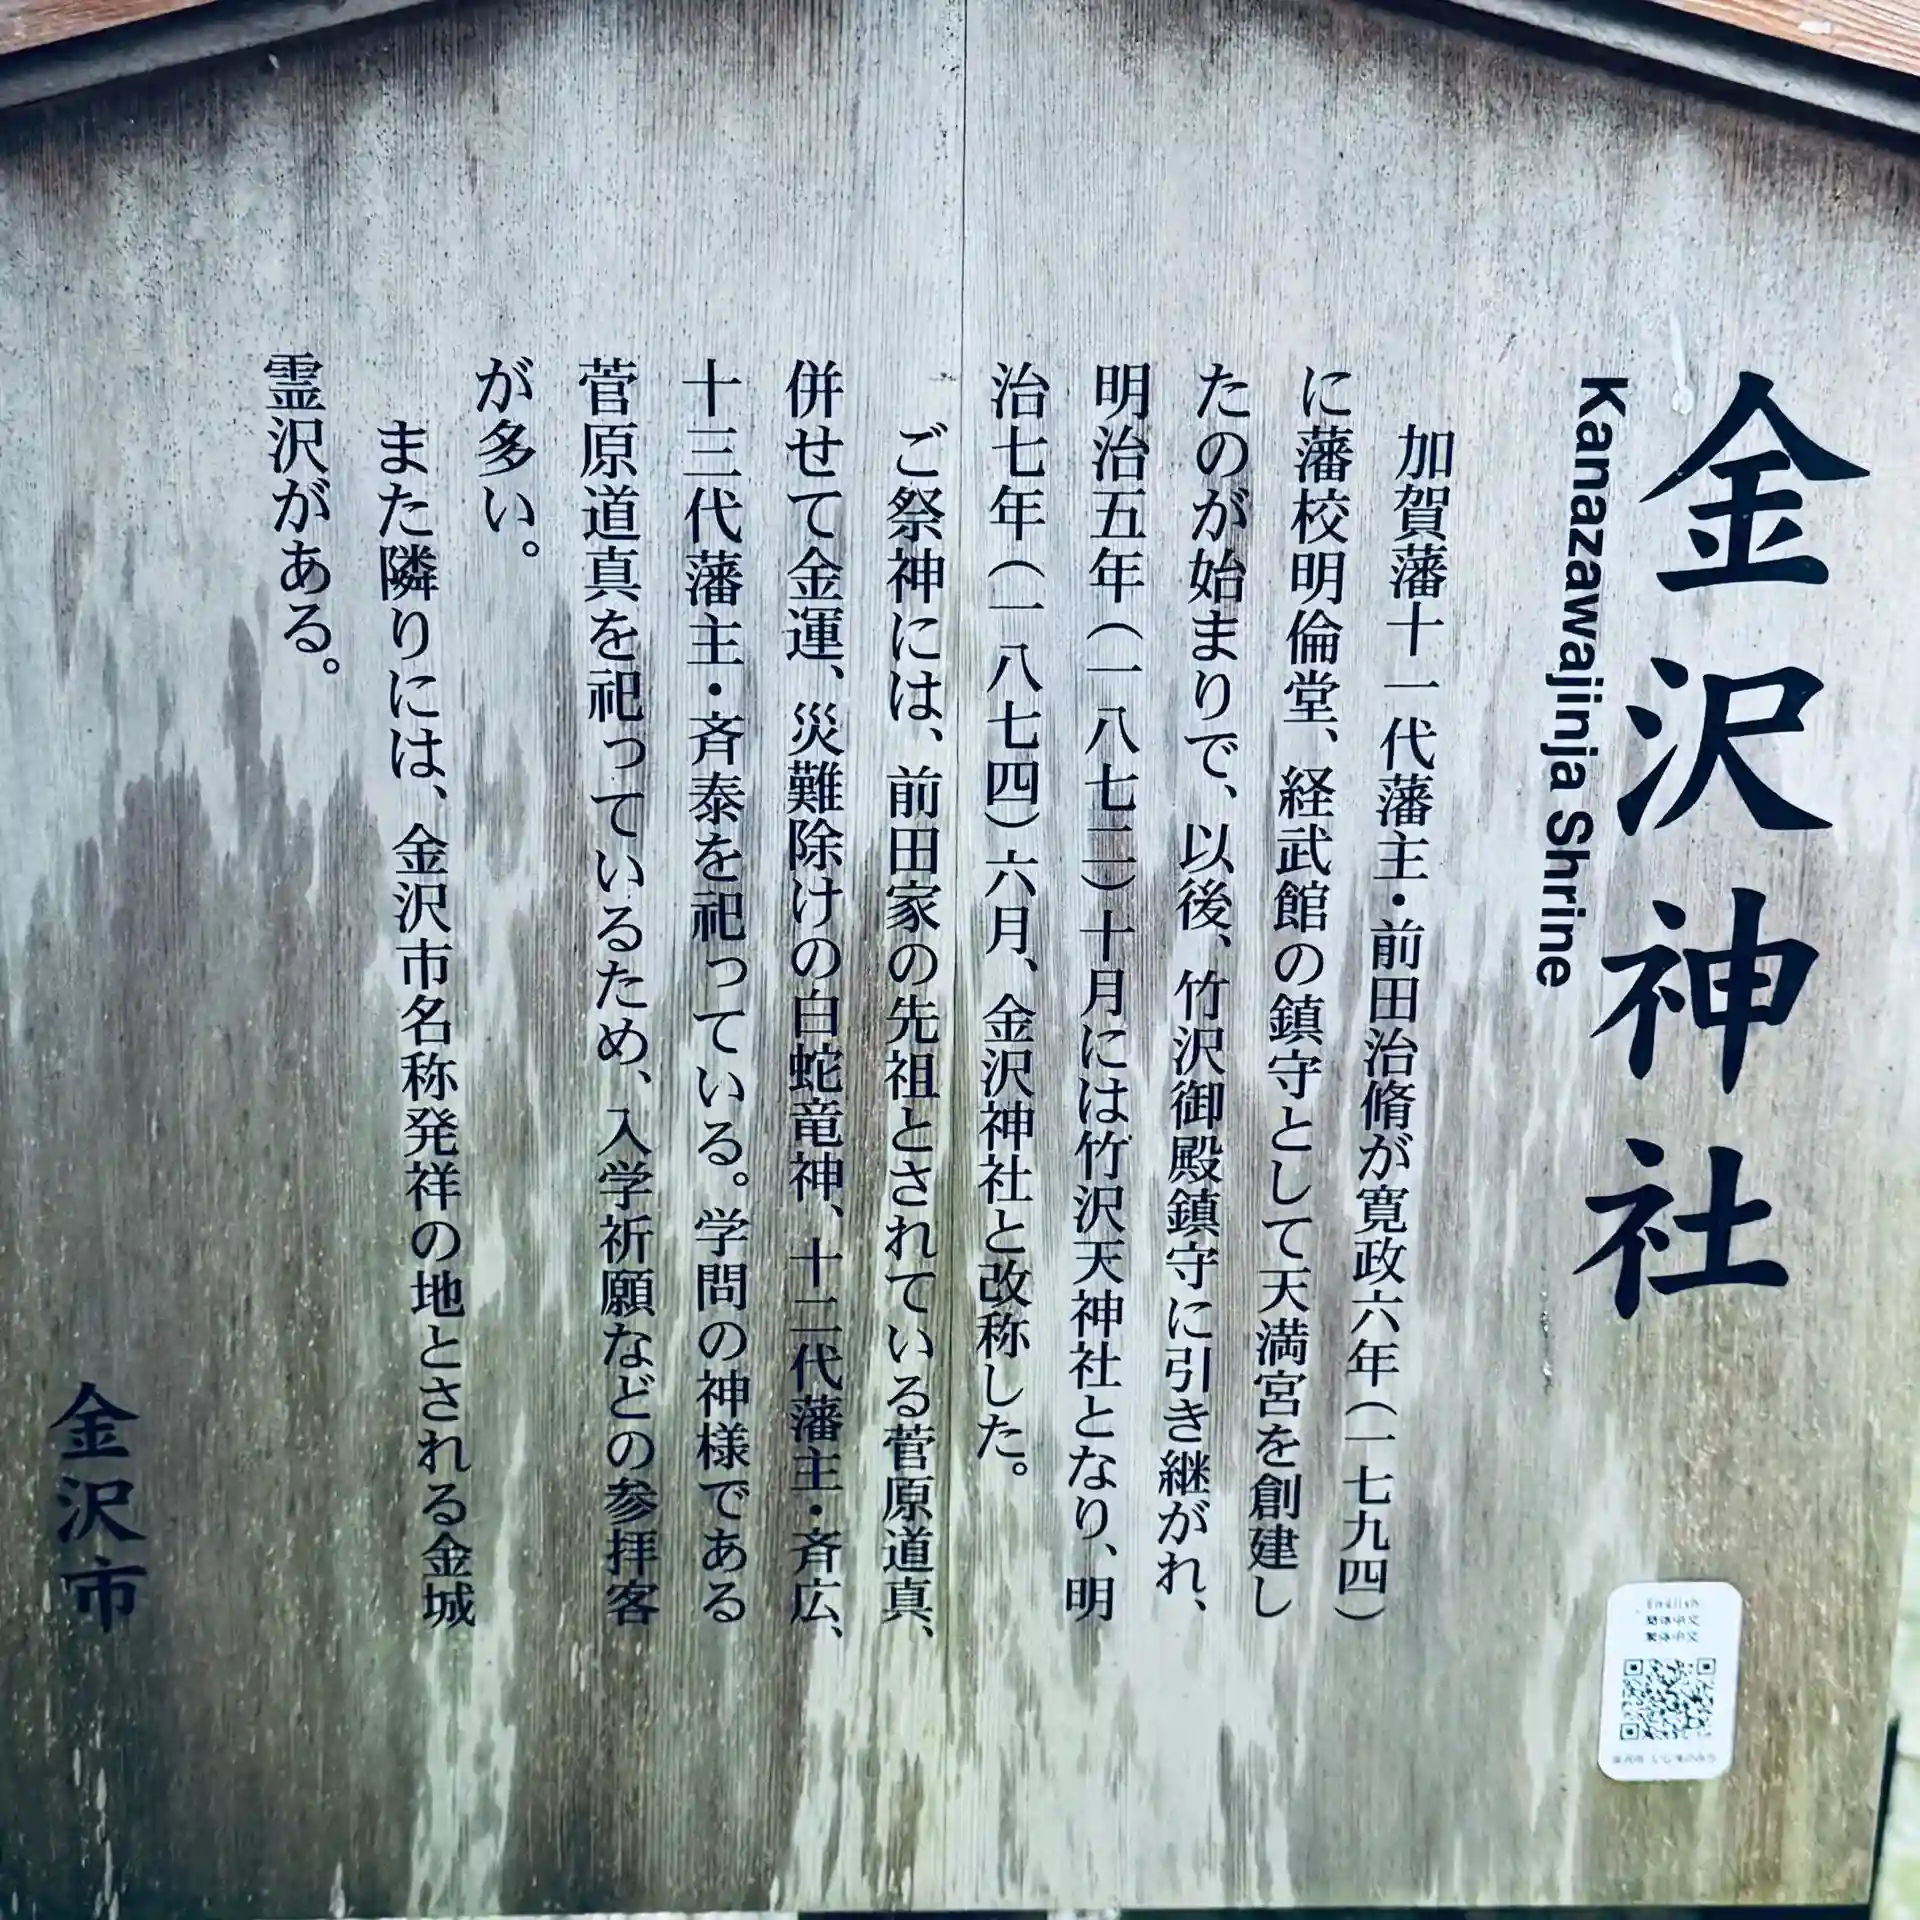 金沢神社
Kanazawajinja Shrine
加賀藩十一代藩主・前田治脩が寛政六年（一七九四）
に藩校明倫堂、経武館の鎮守として天満宮を創建し
たのが始まりで、以後、竹沢御殿鎮守に引き継がれ、
明治五年（一八七二）十月には竹沢天神社となり、明
治七年（一八七四）六月、金沢神社と改称した。
ご祭神には、前田家の先祖とされている菅原道真、
併せて金運、災難除けの白蛇竜神、十二代藩主・斉広、
十三代藩主・斉泰を祀っている。学問の神様である
菅原道真を祀っているため、入学祈願などの参拝客
が多い。
また隣りには、金沢市名称発祥の地とされる金城
霊沢がある。
金沢市
English
簡体中文
繁体中文